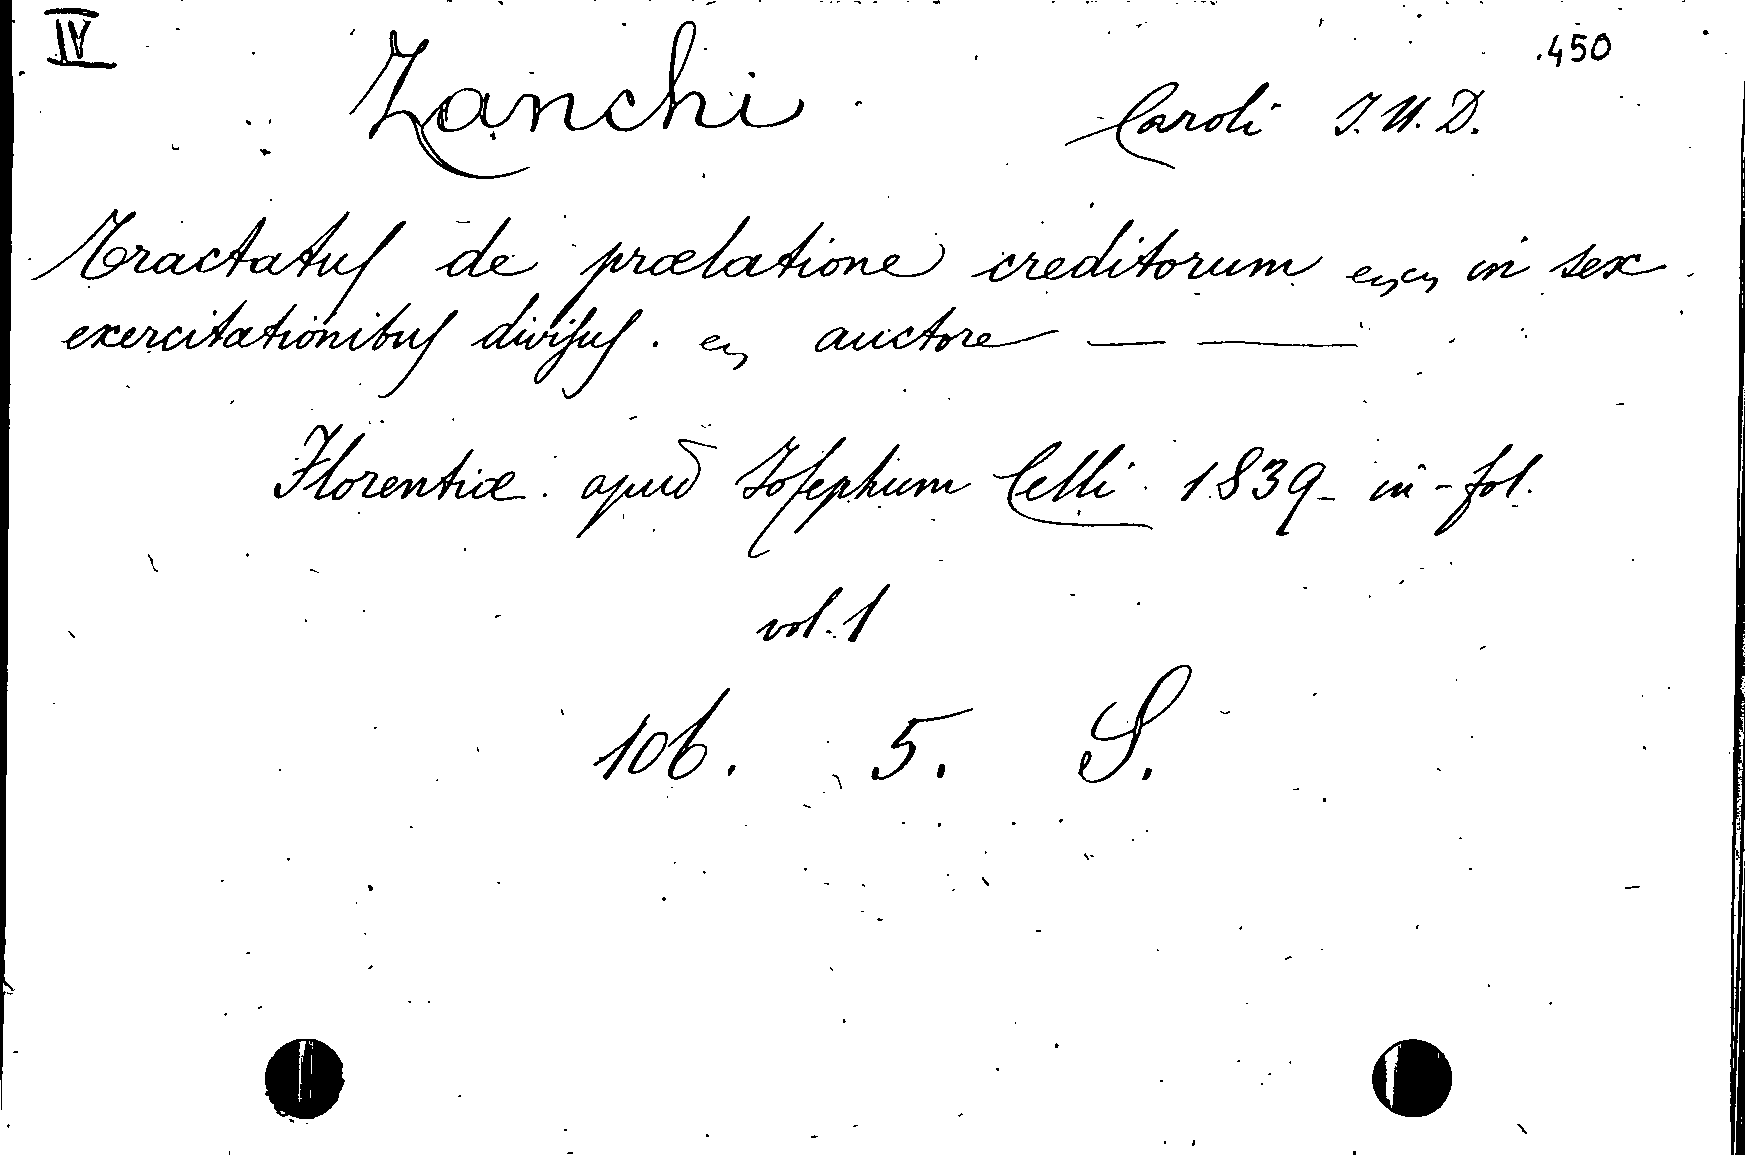 IV
450
Zanchi Caroli J. U. D.
Tractatus de prælatione creditorum in sex
exercitationibus divisus. auctore — —
Florentiæ. apud Josephum Celli 1839 - in-fol.
vol. 1
106. 5. S.